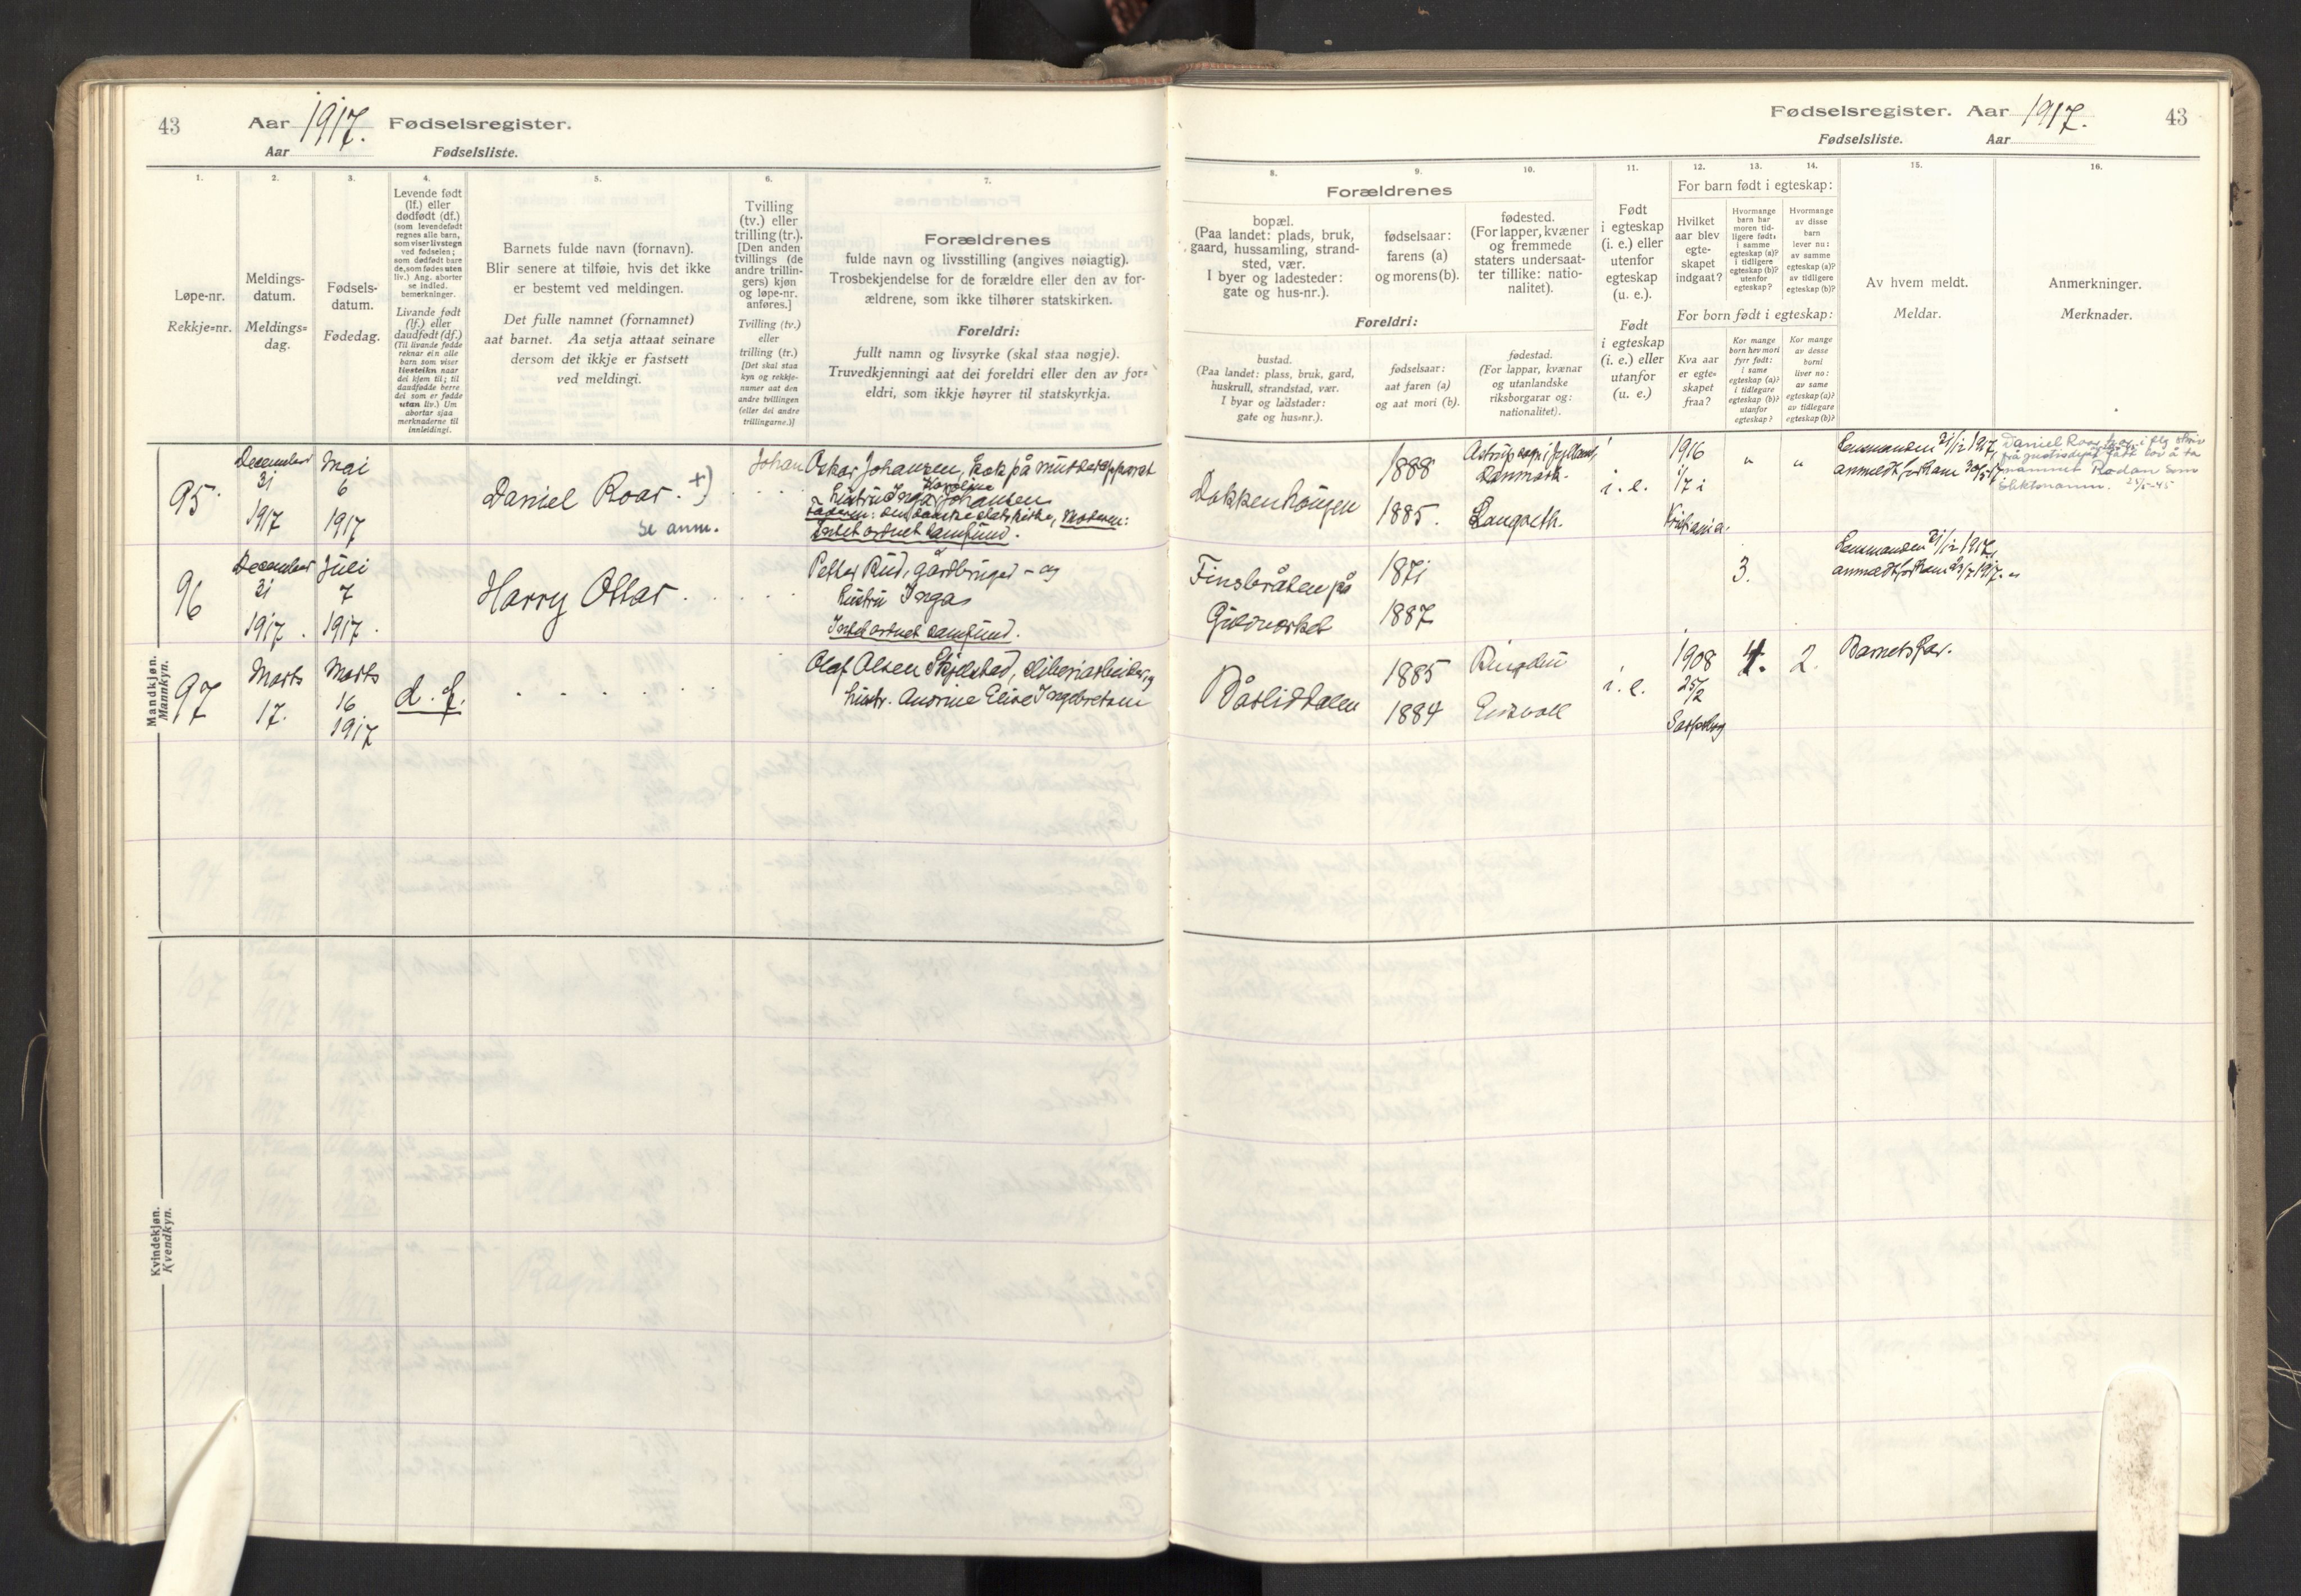 43
Aar 1917. Fødselsregister.
Aar
Fødselsliste.
1.
2.
3.
4.
5.
6.
7.
Løpe-nr.
Rekkje-nr.
Meldings-
datum.
Meldings-
dag.
Fødsels-
datum.
Fødedag.
Levende født
(lf.) eller
dødfødt (df.)
(som levendefødt
regnes alle barn,
som viser livstegn
ved fødselen;
som dødfødt bare
de, som fødes uten
liv.) Ang. aborter
se indled.
bemerkninger.
Livande født
(lf.) eller
daudfødt (df.)
(Til livande fødde
reknar ein alle
barn som viser
livsteikn naar
dei kjem til; til
daudfødde berre
dei som er fødde
utan liv.) Um
abortar sjaa
merknaderne til
innleidingi.
Barnets fulde navn (fornavn).
Blir senere at tilføie, hvis det ikke
er bestemt ved meldingen.
Det fulle namnet (fornamnet)
aat barnet. Aa setja attaat seinare
dersom det ikkje er fastsett
ved meldingi.
Tvilling
(tv.) eller
trilling (tr.).
[Den anden
tvillings (de
andre trillin-
gers) kjøn
og løpe-nr.
anføres.]
Tvilling (tv.)
eller
trilling (tr.)
[Det skal staa
kyn og rekkje-
numer aat den
andre tvillingen
(eller dei andre
trillingarne.)]
Forældrenes
fulde navn og livsstilling (angives nøiagtig).
Trosbekjendelse for de forældre eller den av for-
ældrene, som ikke tilhører statskirken.
Foreldri:
fullt namn og livsyrke (skal staa nøgje).
Truvedkjenningi aat dei foreldri eller den av for-
eldri, som ikkje høyrer til statskyrkja.
Mandkjøn.
Mannkyn.
95.
December
31
1917
Mai
6
1917
Daniel Roar. +)
se anm.
Johan Oskar Johansen, kok på
Karoline
hustru Inga Johansen
Faderen: den danske statskirke, Moderen:
Intet ordnet samfund.
96
December
31
1917.
Juli
7
1917.
Harry Ottar.
Petter Rud, gårdbruger - og
hustru Inga
Intet ordnet samfund.
97
Marts
17.
Marts
16
1917
d. f.
Olaf Olsen Skjelstad,
hustr. Anorine Elise Ingebretsen
Kvindekjøn.
Kvendkyn.
Fødselsregister. Aar 1917.
43
Fødselsliste.
Aar
8.
9.
10.
11.
12.
13.
14.
15.
16.
Forældrenes
bopæl.
(Paa landet: plads, bruk,
gaard, hussamling, strand-
sted, vær.
I byer og ladesteder:
gate og hus-nr.).
fødselsaar:
farens (a)
og morens (b).
fødested.
(For lapper, kvæner
og fremmede
staters undersaat-
ter tillike: natio-
nalitet).
Foreldri:
bustad.
(Paa landet: plass, bruk, gard,
huskrull, strandstad, vær.
I byar og ladstader:
gate og hus-nr.).
fødselsaar:
aat faren (a)
og aat mori (b).
fødestad.
(For lappar, kvænar
og utanlandske
riksborgarar og:
nationalitet).
Født
i egteskap
(i. e.) eller
utenfor
egteskap
(u. e.).
Født
i egteskap
(i. e.) eller
utanfor
(u. e.)
For barn født i egteskap:
Hvilket
aar blev
egte-
skapet
indgaat?
Hvormange
barn har
moren tid-
ligere født:
i samme
egteskap (a)?
i tidligere
egteskap (b)?
utenfor
egteskap?
Hvormange
av disse
barn
lever nu:
av samme
egteskap (a)?
av tidligere
egteskap (b)?
For born født i egteskap:
Kva aar
er egte-
skapet
fraa?
Kor mange
born hev mori
fyrr født:
i same
egteskap (a)?
i tidlegare
egteskap (b)?
utanfor
egteskap?
Kor mange
av desse
borni
liver no:
av same
egteskap (a)?
av tidlegare
egteskap (b)?
Av hvem meldt.
Meldar.
Anmerkninger.
Merknader.
Dokkenhaugen
1888
1885.
Astrup sogn i Jylland,
Danmark.
Langseth.
i. e.
1916
17
Kristiania.
"
"
Lensmanden 31/12 1917,
anmeldt for ham
Daniel Roar har i flg skriv
frå justisdep. fått lov å ta
namnet Rodan som
slektsnamn. 25/5-45
Finsbråten på
Guldverket
1871
1887
3.
"
Lensmanden 31/12 1917,
anmeldt for ham 23/7 1917.
Båtlidtalen
1885
1884
Eidsvoll
i. e.
1908
25/2
Sarpsborg
4.
2.
Barnets Far.